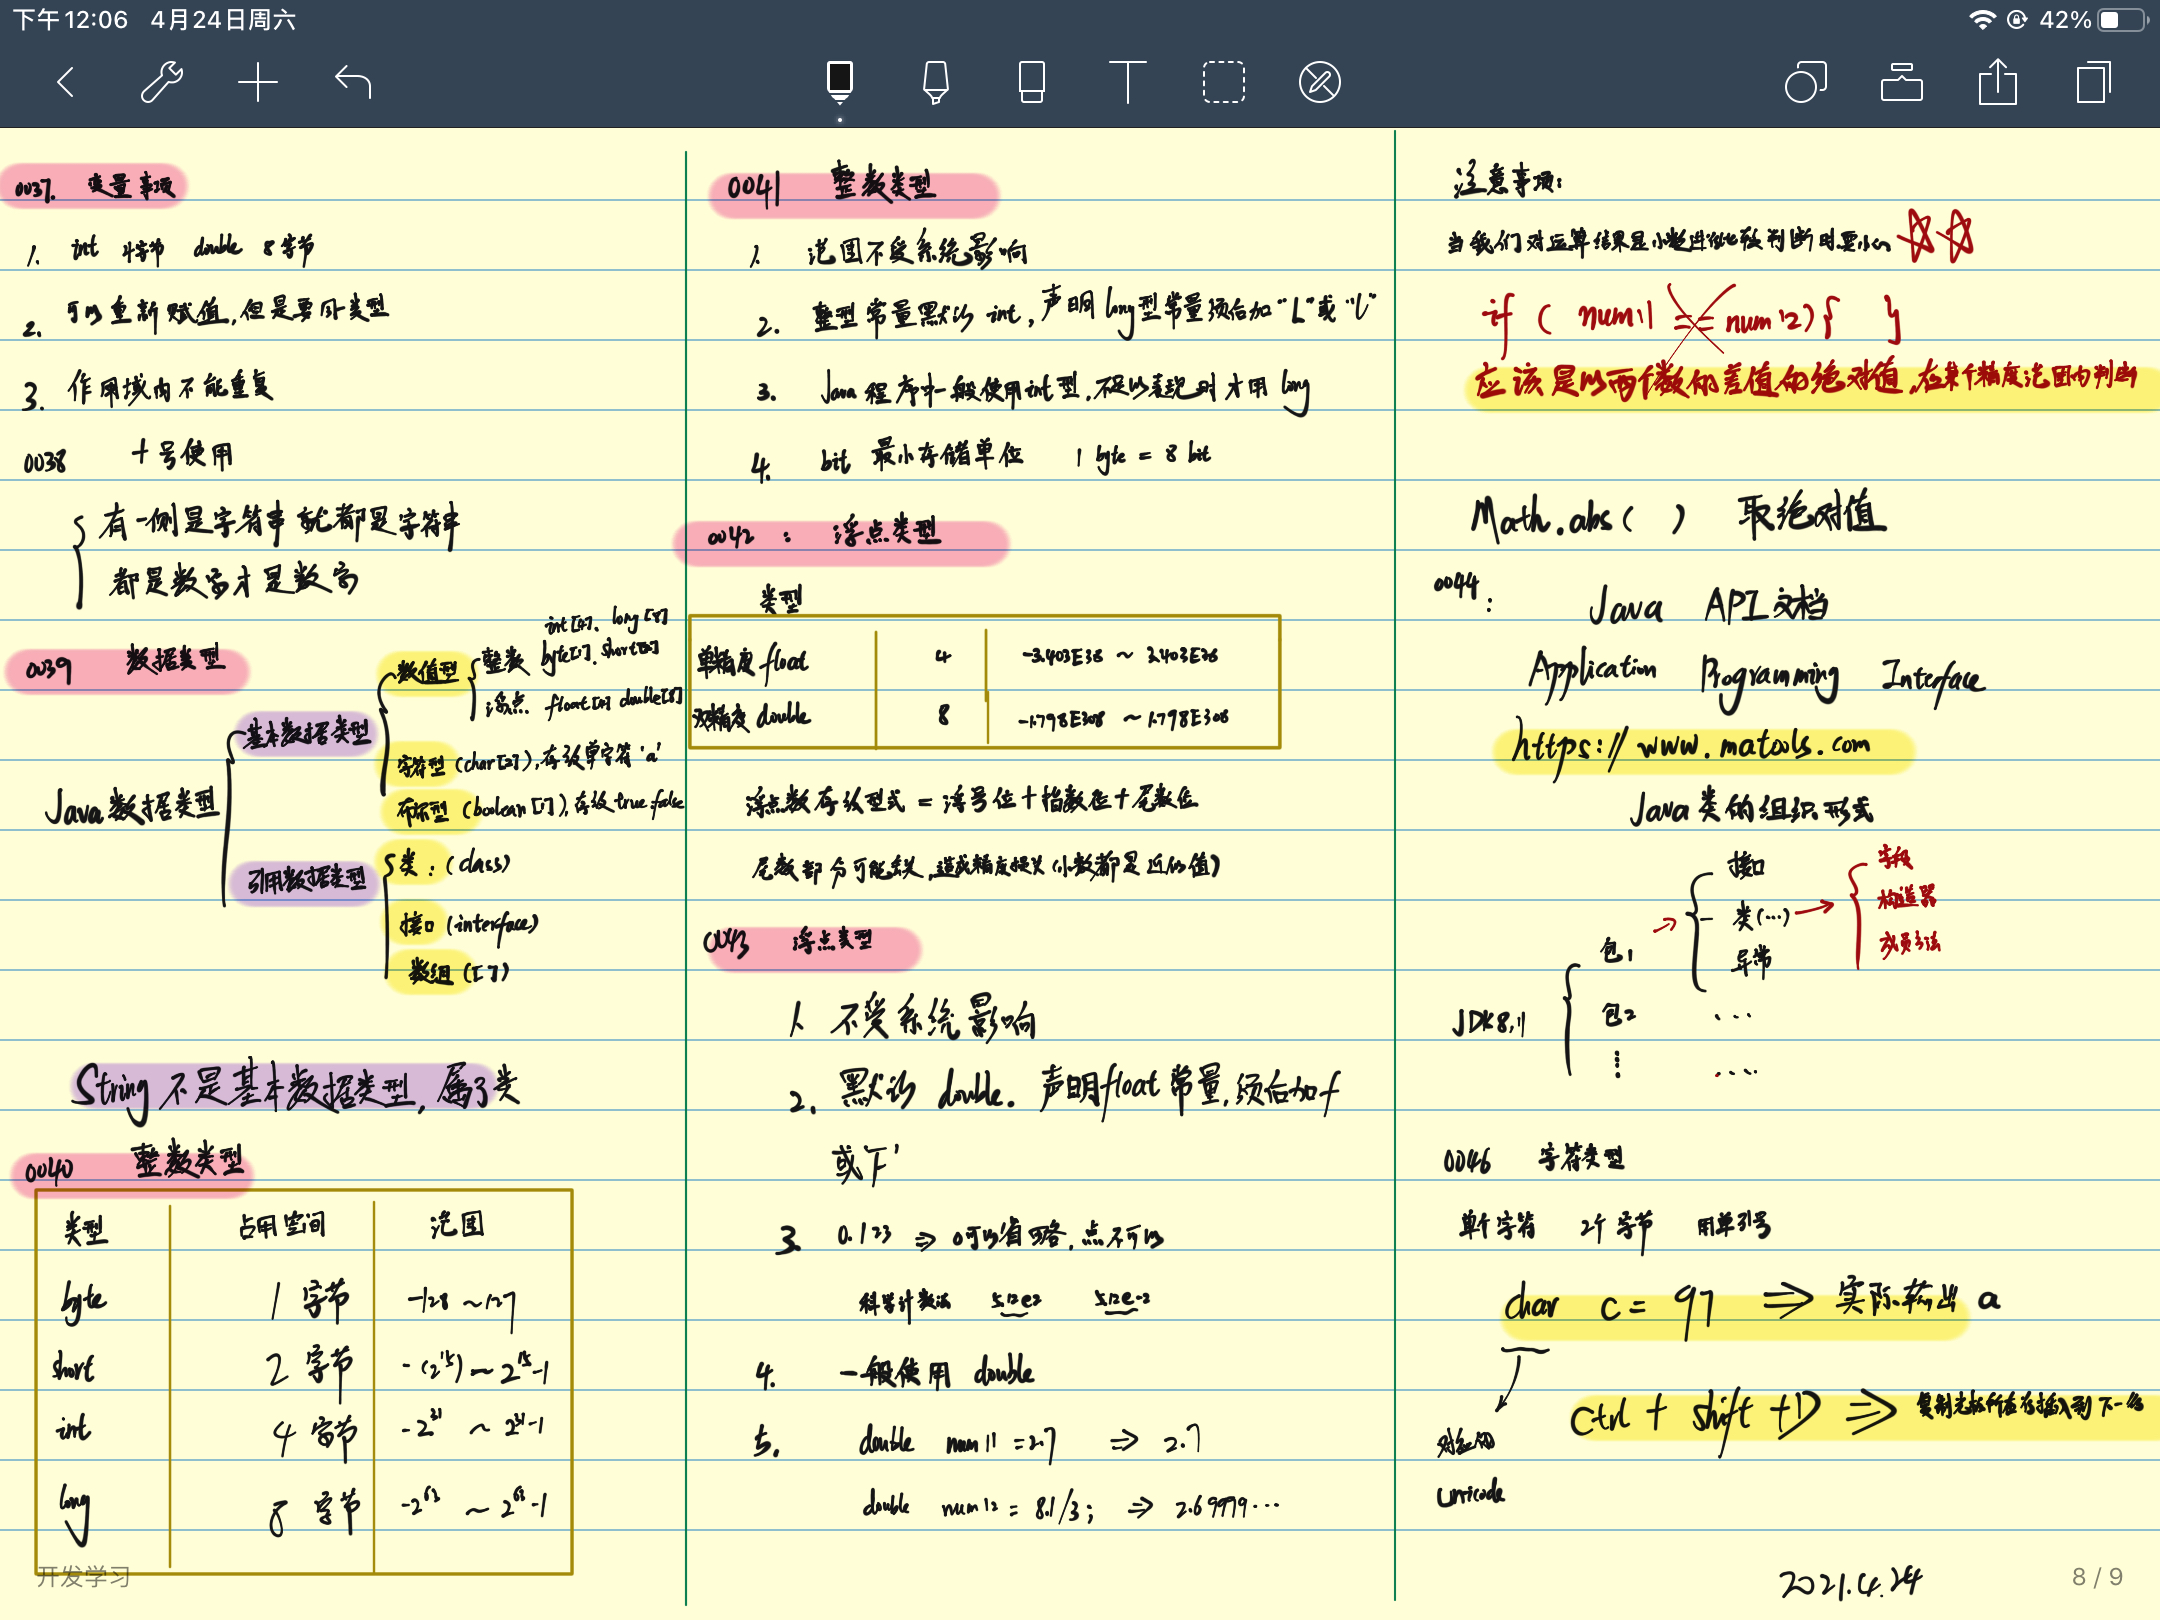 下午12:06 4月24日周六
42%
0037. 变量事项
1. int 4字节 double 8字节
2. 可以重新赋值,但是要同类型
3. 作用域内不能重复
0038 +号使用
有一侧是字符串就都是字符串
都是数字才是数字
0039 数据类型
Java数据类型
基本数据类型
数值型
整数 int[4]. long[8]
byte[1]. short[2]
浮点. float[4] double[8]
字符型 (char[2]),存放单字符 'a'
布尔型 (boolean[1]),存放true.false
引用数据类型
类: (class)
接口 (interface)
数组 ([])
String 不是基本数据类型, 属于类
0040 整数类型
类型 占用空间 范围
byte 1 字节 -128 ~ 127
short 2 字节 -(2¹⁵) ~ 2¹⁵-1
int 4 字节 -2³¹ ~ 2³¹-1
long 8 字节 -2⁶³ ~ 2⁶³-1
开发学习
0041 整数类型
1. 范围不受系统影响
2. 整型常量默认 int, 声明long型常量须后加"L"或"l"
3. Java 程序中一般使用int型,不足以表现时才用 long
4. bit 最小存储单位 1 byte = 8 bit
0042 : 浮点类型
类型
单精度float 4 -3.403E38 ~ 3.403E38
双精度 double 8 -1.798E308 ~ 1.798E308
浮点数存放型式 = 浮号位+指数位+尾数位
尾数部分可能丢失,造成精度损失(小数都是近似值)
0043 浮点类型
1. 不受系统影响
2. 默认 double. 声明float常量,须后加f
或'F'
3. 0.123 ⇒ 0可以省略,点不可以
科学计数法 5.12e2 5.12e-2
4. 一般使用 double
5. double num11 = 2.7 ⇒ 2.7
double num12 = 8.1/3; ⇒ 2.69999...
注意事项:
当我们对运算结果是小数进行比较判断时,要小心
if ( num11 == num12){ }
应该是以两个数的差值的绝对值,在某个精度范围内判断
Math.abs( ) 取绝对值
0044: Java API文档
Application Programming Interface
https://www.matools.com
Java 类的组织形式
JDK8,11
包1 → 接口
类(...) → 字段
构造器
成员方法
异常
包2 ...
⋮ ....
0046 字符类型
单个字符 2个字节 用单引号
char c = 97 ⇒ 实际输出 a
对应的
unicode
Ctrl + shift + D ⇒ 复制光标所在行插入到下一行
2021.4.24
8 / 9